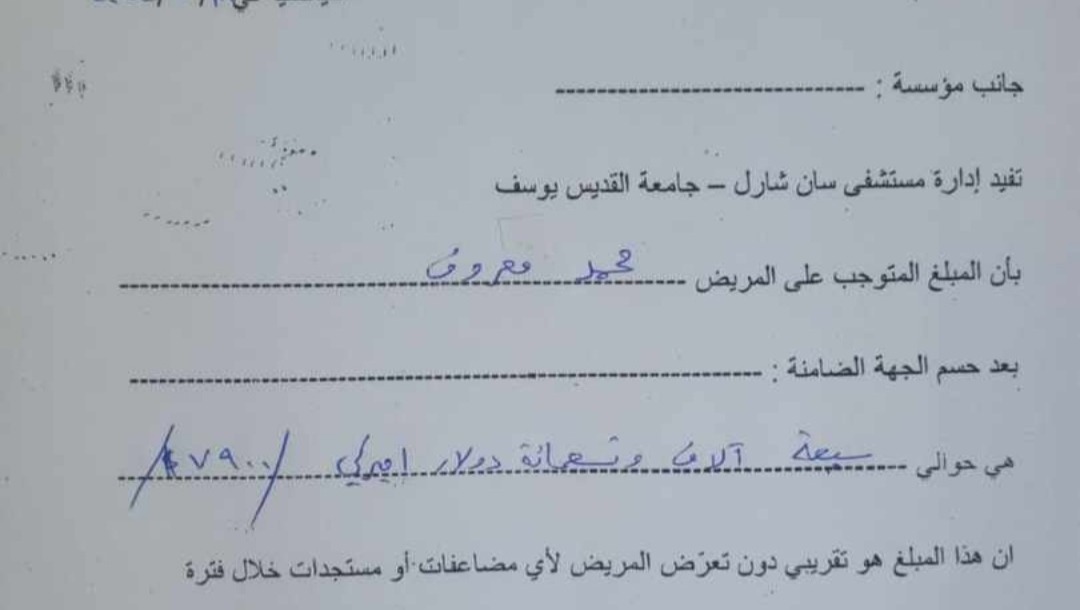 جانب مؤسسة : ------------------------------
تفيد إدارة مستشفى سان شارل – جامعة القديس يوسف
بأن المبلغ المتوجب على المريض محمد معروف
بعد حسم الجهة الضامنة : ------------------------------
هي حوالي سبعة آلاف وتسعمائة دولار اميركي /٧٩٠٠$/
ان هذا المبلغ هو تقريبي دون تعرّض المريض لأي مضاعفات أو مستجدات خلال فترة